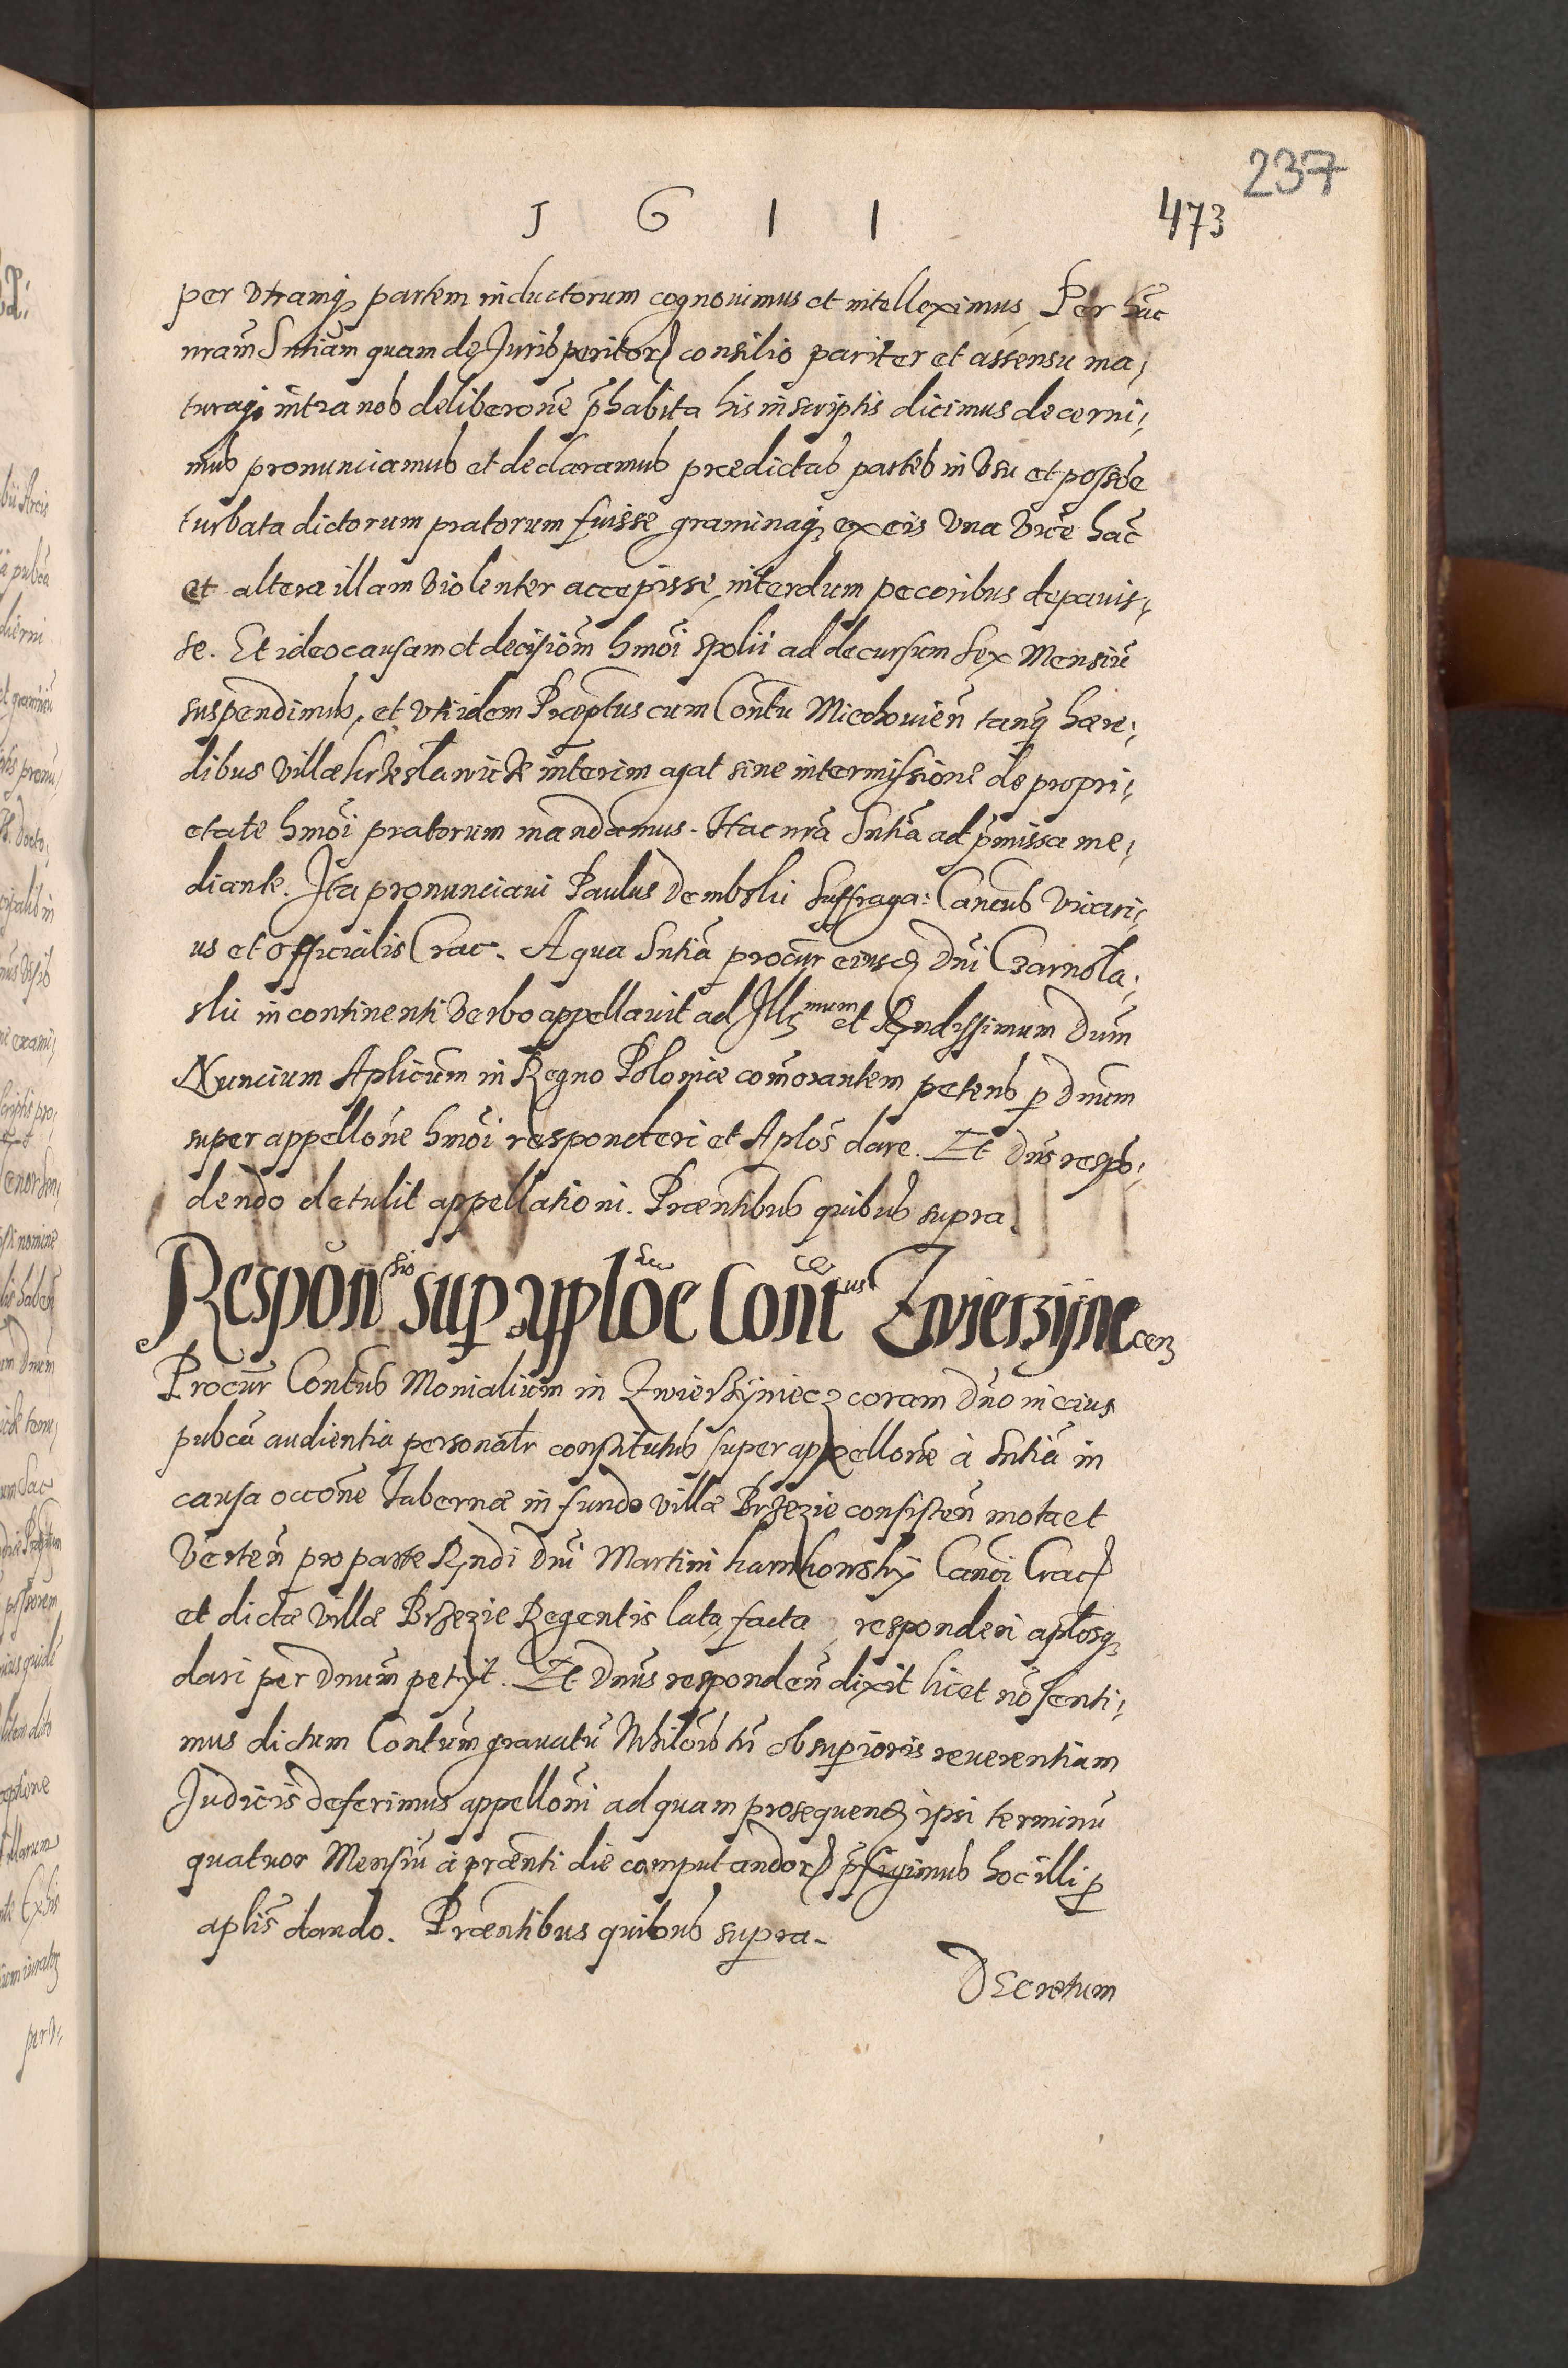 237
1611
473
per vtramq partem inductorum cognouimus et intelleximus, Per hāc
nrām Sntiām quam de Jurisperitor consilio pariter et assensu ma;
turaq intra nos deliberone p̄habita his inscriptis dicimus decerni;
mus pronunciamus et declaramus prædictas partes in Vsu et possōe
turbata dictorum pratorum fuisse graminaq ex eis Vna Vice hac
et altera illam Violenter accepisse, interdum pecoribus depauis;
se. Et ideo causam et decisiōm hmōi spolii ad decursum sex Mensiū
suspendimus, et Vti idem Præptus cum Contu Miechouien̄ tanq hære;
dibus Villæ interim agat sine intermissione de propri;
etate hmōi pratorum mandamus. Hac nrā Sntiā ad p̄missa me;
diante. Ita pronunciaui Paulus Dembski Suffraga: Cancus Vicari;
us et officialis Crac. A qua Sntiā procur̄ eiusd Dni Czarnola;
skii incontinenti Verbo appellauit ad Illmum et Rndissimum Dum
Nuncium Aplicum in Regno Poloniæ com̄orantem petens p Dnum
super appellōne hmōi responderi et Aplos dare. Et Dns respō;
dendo detulit appellationi. Præntibus quibus supra.
Respōnsio sup applōe Contus Zwierzÿnecen
Procur̄ Contus Monialium in Zwierzÿniecz coram Dno in eius
pubca audientia personalr constitutus super appellone à Sntiā in
causa occōne Tabernæ in fundo villæ Brzezie consisten̄ mota et
Verten̄ pro parte Rndi Dni Martini Canci Crac
et dictæ Villæ Brzezie Regentis lata, facta, responderi aplosq
dari per Dnum petyt. Et Dnus responden̄ dixit licet nō senti;
mus dictum Contum grauatū Nihilōis tn̄ ob superioris reuerentiam
Judicis deferimus appellōni ad quam prosequend ipsi terminū
quatuor Mensiū à prænti die computandor p̄figimus hoc illi p
aplis dando. Præntibus quibus supra.
Decretum